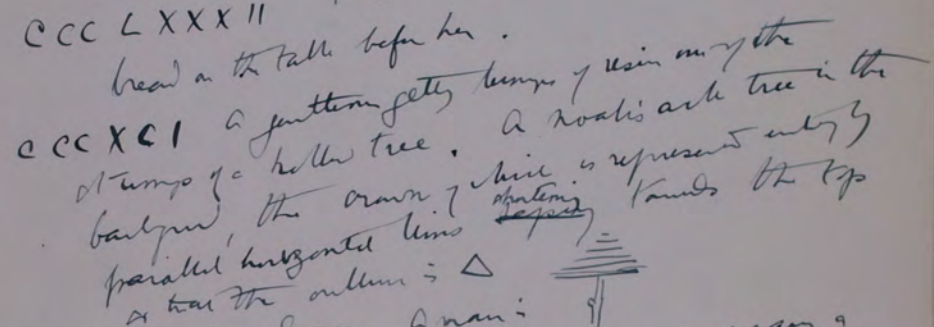 CCCLXXXII
bread on the table before her.
CCCXCI a gentleman getting lumps of resin out of the
stump of a hollow tree. A noah's ark tree in the
background, the crown of which is represented entirely by
parallel horizontal lines shortening towards the top
so that the outline is △